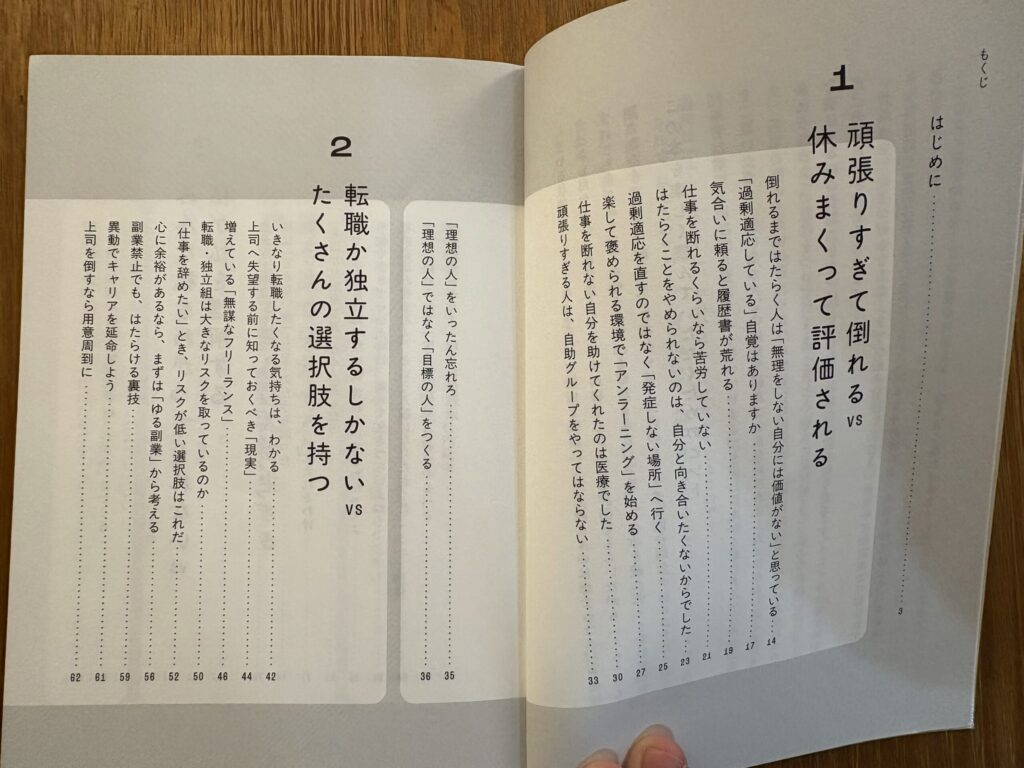 もくじ
はじめに 3
1
頑張りすぎて倒れる vs
休みまくって評価される
倒れるまではたらく人は「無理をしない自分には価値がない」と思っている 14
「過剰適応している」自覚はありますか 17
気合いに頼ると履歴書が荒れる 19
仕事を断れるくらいなら苦労していない 21
はたらくことをやめられないのは、自分と向き合いたくないからでした 23
過剰適応を直すのではなく「発症しない場所」へ行く 25
楽して褒められる環境で「アンラーニング」を始める 27
仕事を断れない自分を助けてくれたのは医療でした 30
頑張りすぎる人は、自助グループをやってはならない 33
「理想の人」をいったん忘れろ 35
「理想の人」ではなく「目標の人」をつくる 36
2
転職か独立するしかない vs
たくさんの選択肢を持つ
いきなり転職したくなる気持ちは、わかる 42
上司へ失望する前に知っておくべき「現実」 44
増えている「無謀なフリーランス」 46
転職・独立組は大きなリスクを取っているのか 50
「仕事を辞めたい」とき、リスクが低い選択肢はこれだ 52
心に余裕があるなら、まずは「ゆる副業」から考える 56
副業禁止でも、はたらける裏技 59
異動でキャリアを延命しよう 61
上司を倒すなら用意周到に 62